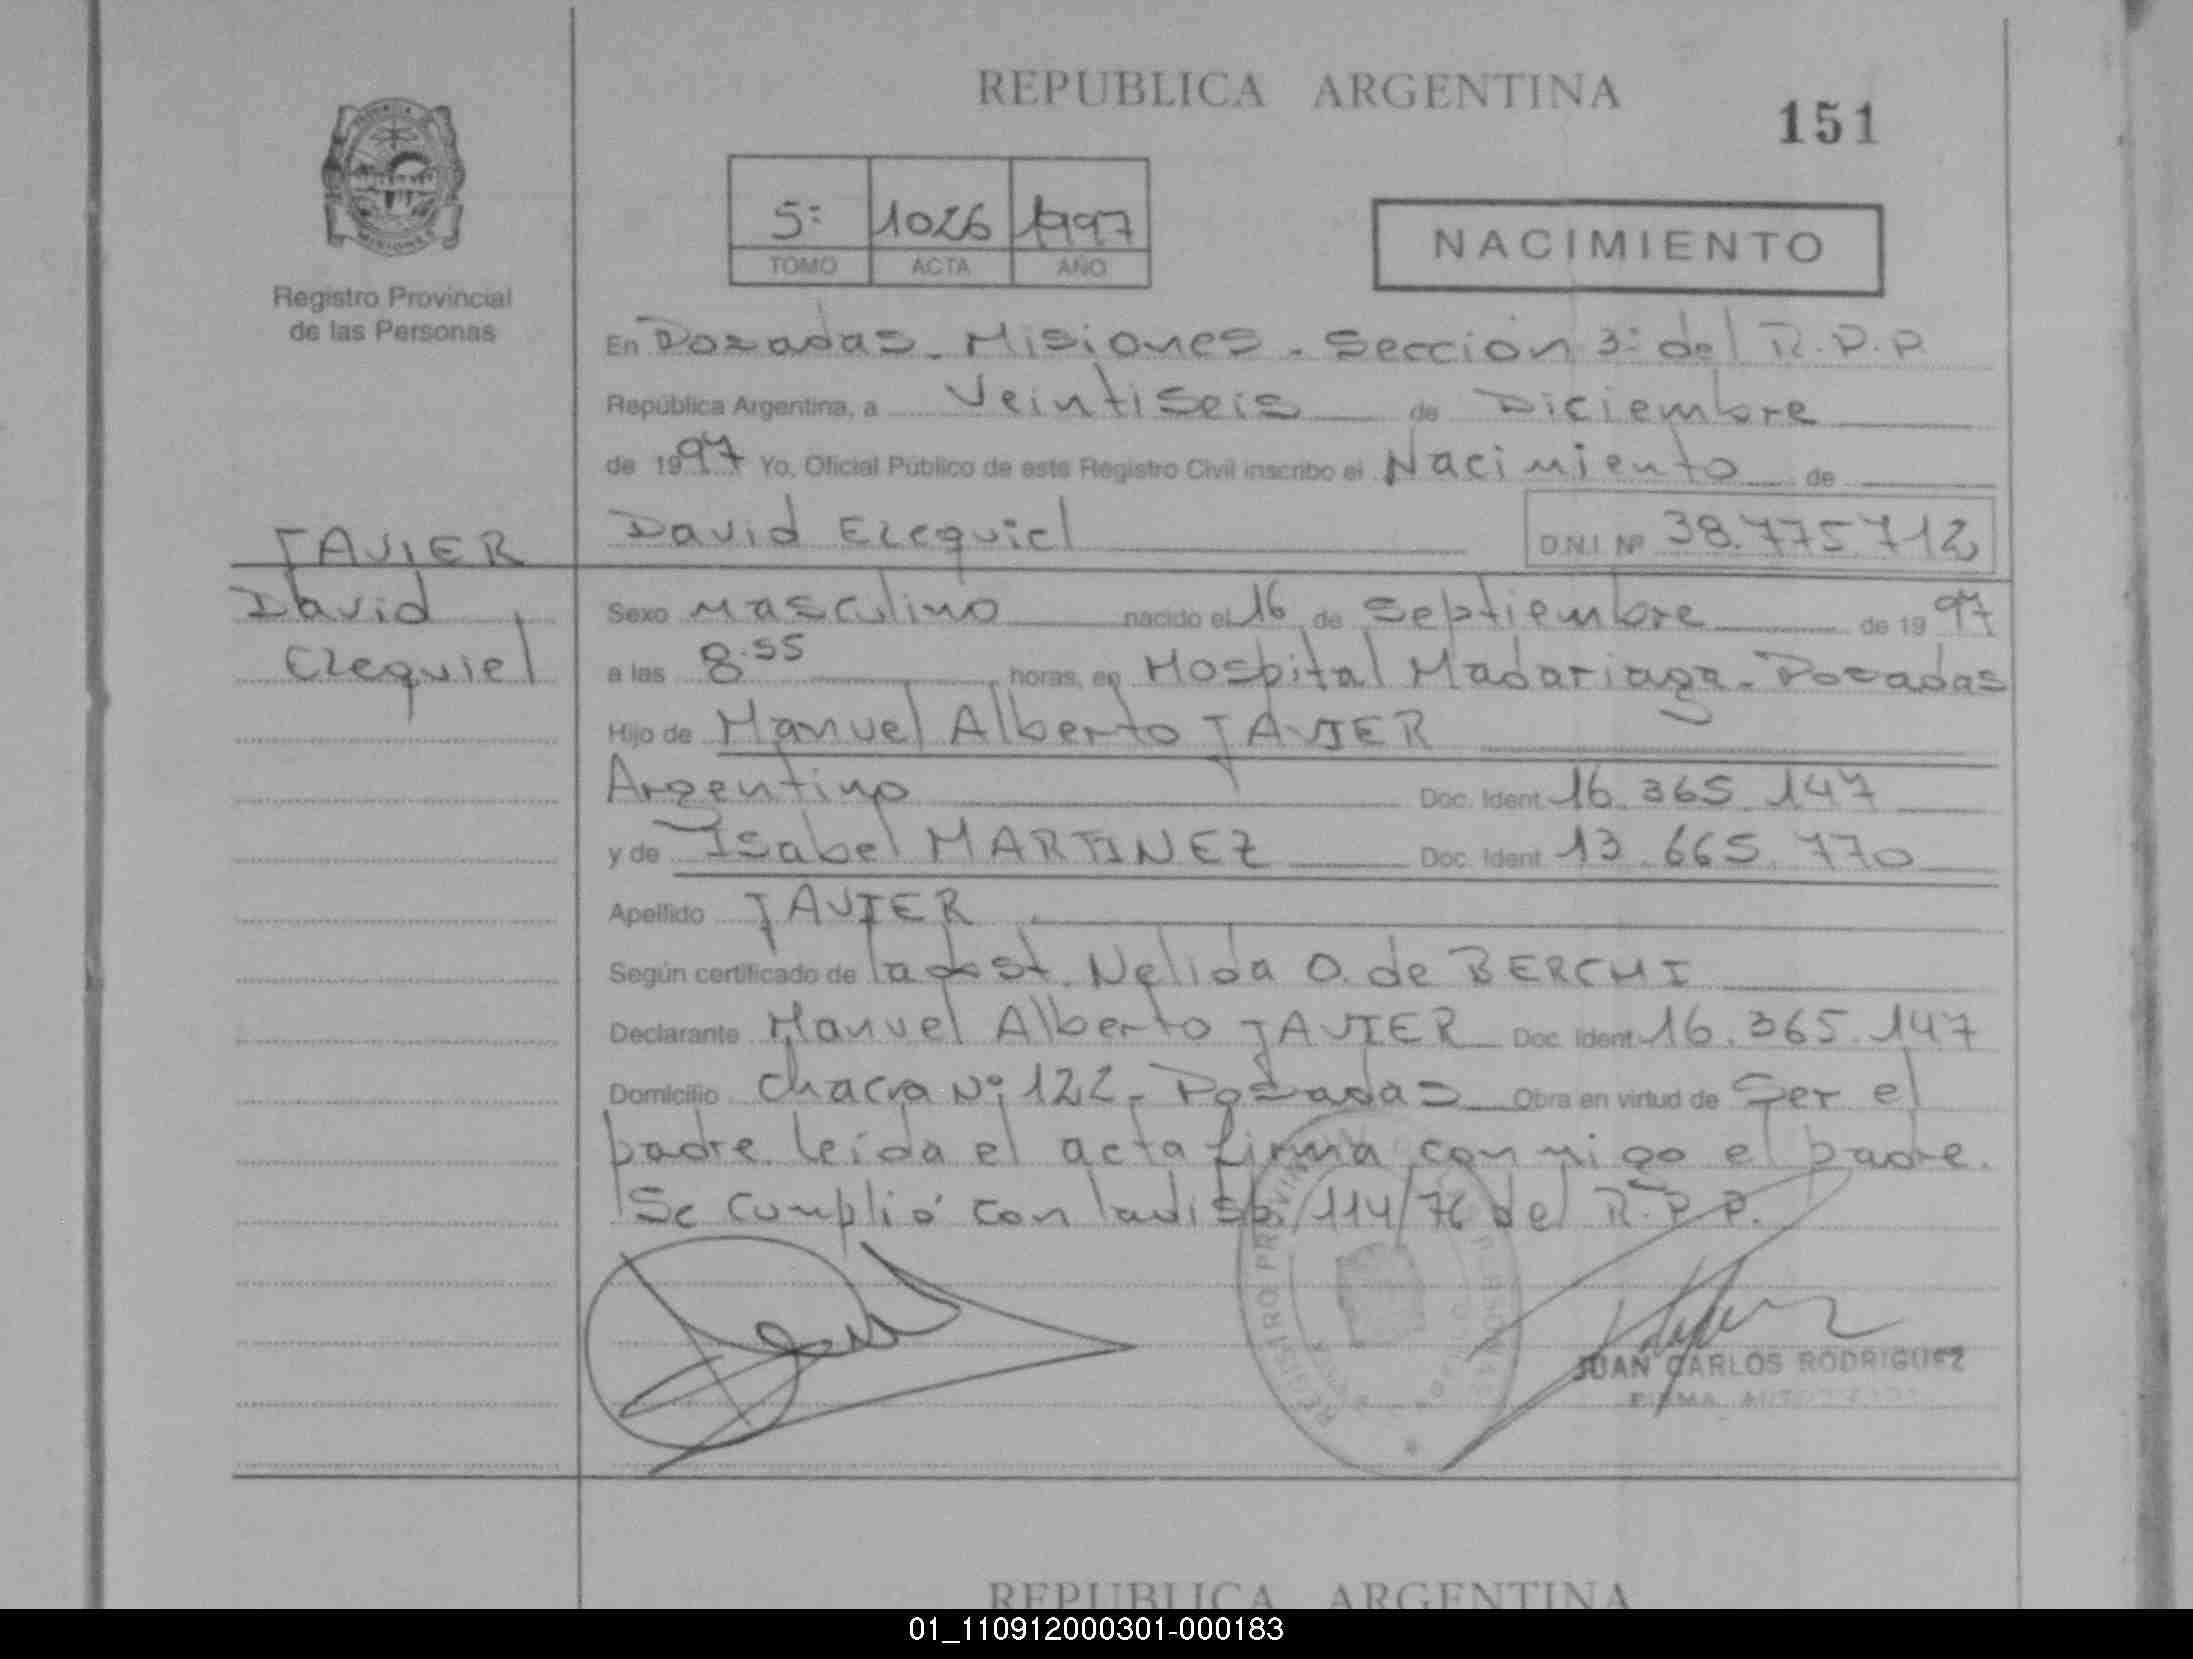 REPUBLICA ARGENTINA
151
5º 1026 1997
TOMO ACTA AÑO
NACIMIENTO
Registro Provincial
de las Personas
En Posadas - Misiones - Sección 3º del R.P.P
República Argentina, a Veintiseis de Diciembre
de 1997 Yo, Oficial Público de este Registro Civil inscribo el Nacimiento de
David Ezequiel D.N.I. Nº 38.775.712
JAVIER
David
Ezequiel
Sexo Masculino nacido el 16 de Septiembre de 1997
a las 8.55 horas, en Hospital Madariaga - Posadas
Hijo de Manuel Alberto JAVIER
Argentino Doc. Ident 16.365.147
y de Isabel MARTINEZ Doc. Ident 13.665.770
Apellido JAVIER
Según certificado de la Nelida O. de BERCHI
Declarante Manuel Alberto JAVIER Doc. Ident 16.365.147
Domicilio Chacra Nº 122 - Posadas Obra en virtud de Ser el
padre leída el acta firma conmigo el padre.
Se cumplió con la disp. 114/76 del R.P.P.
REGISTRO
JUAN CARLOS RODRIGUEZ
FIRMA
REPUBLICA ARGENTINA
01_110912000301-000183